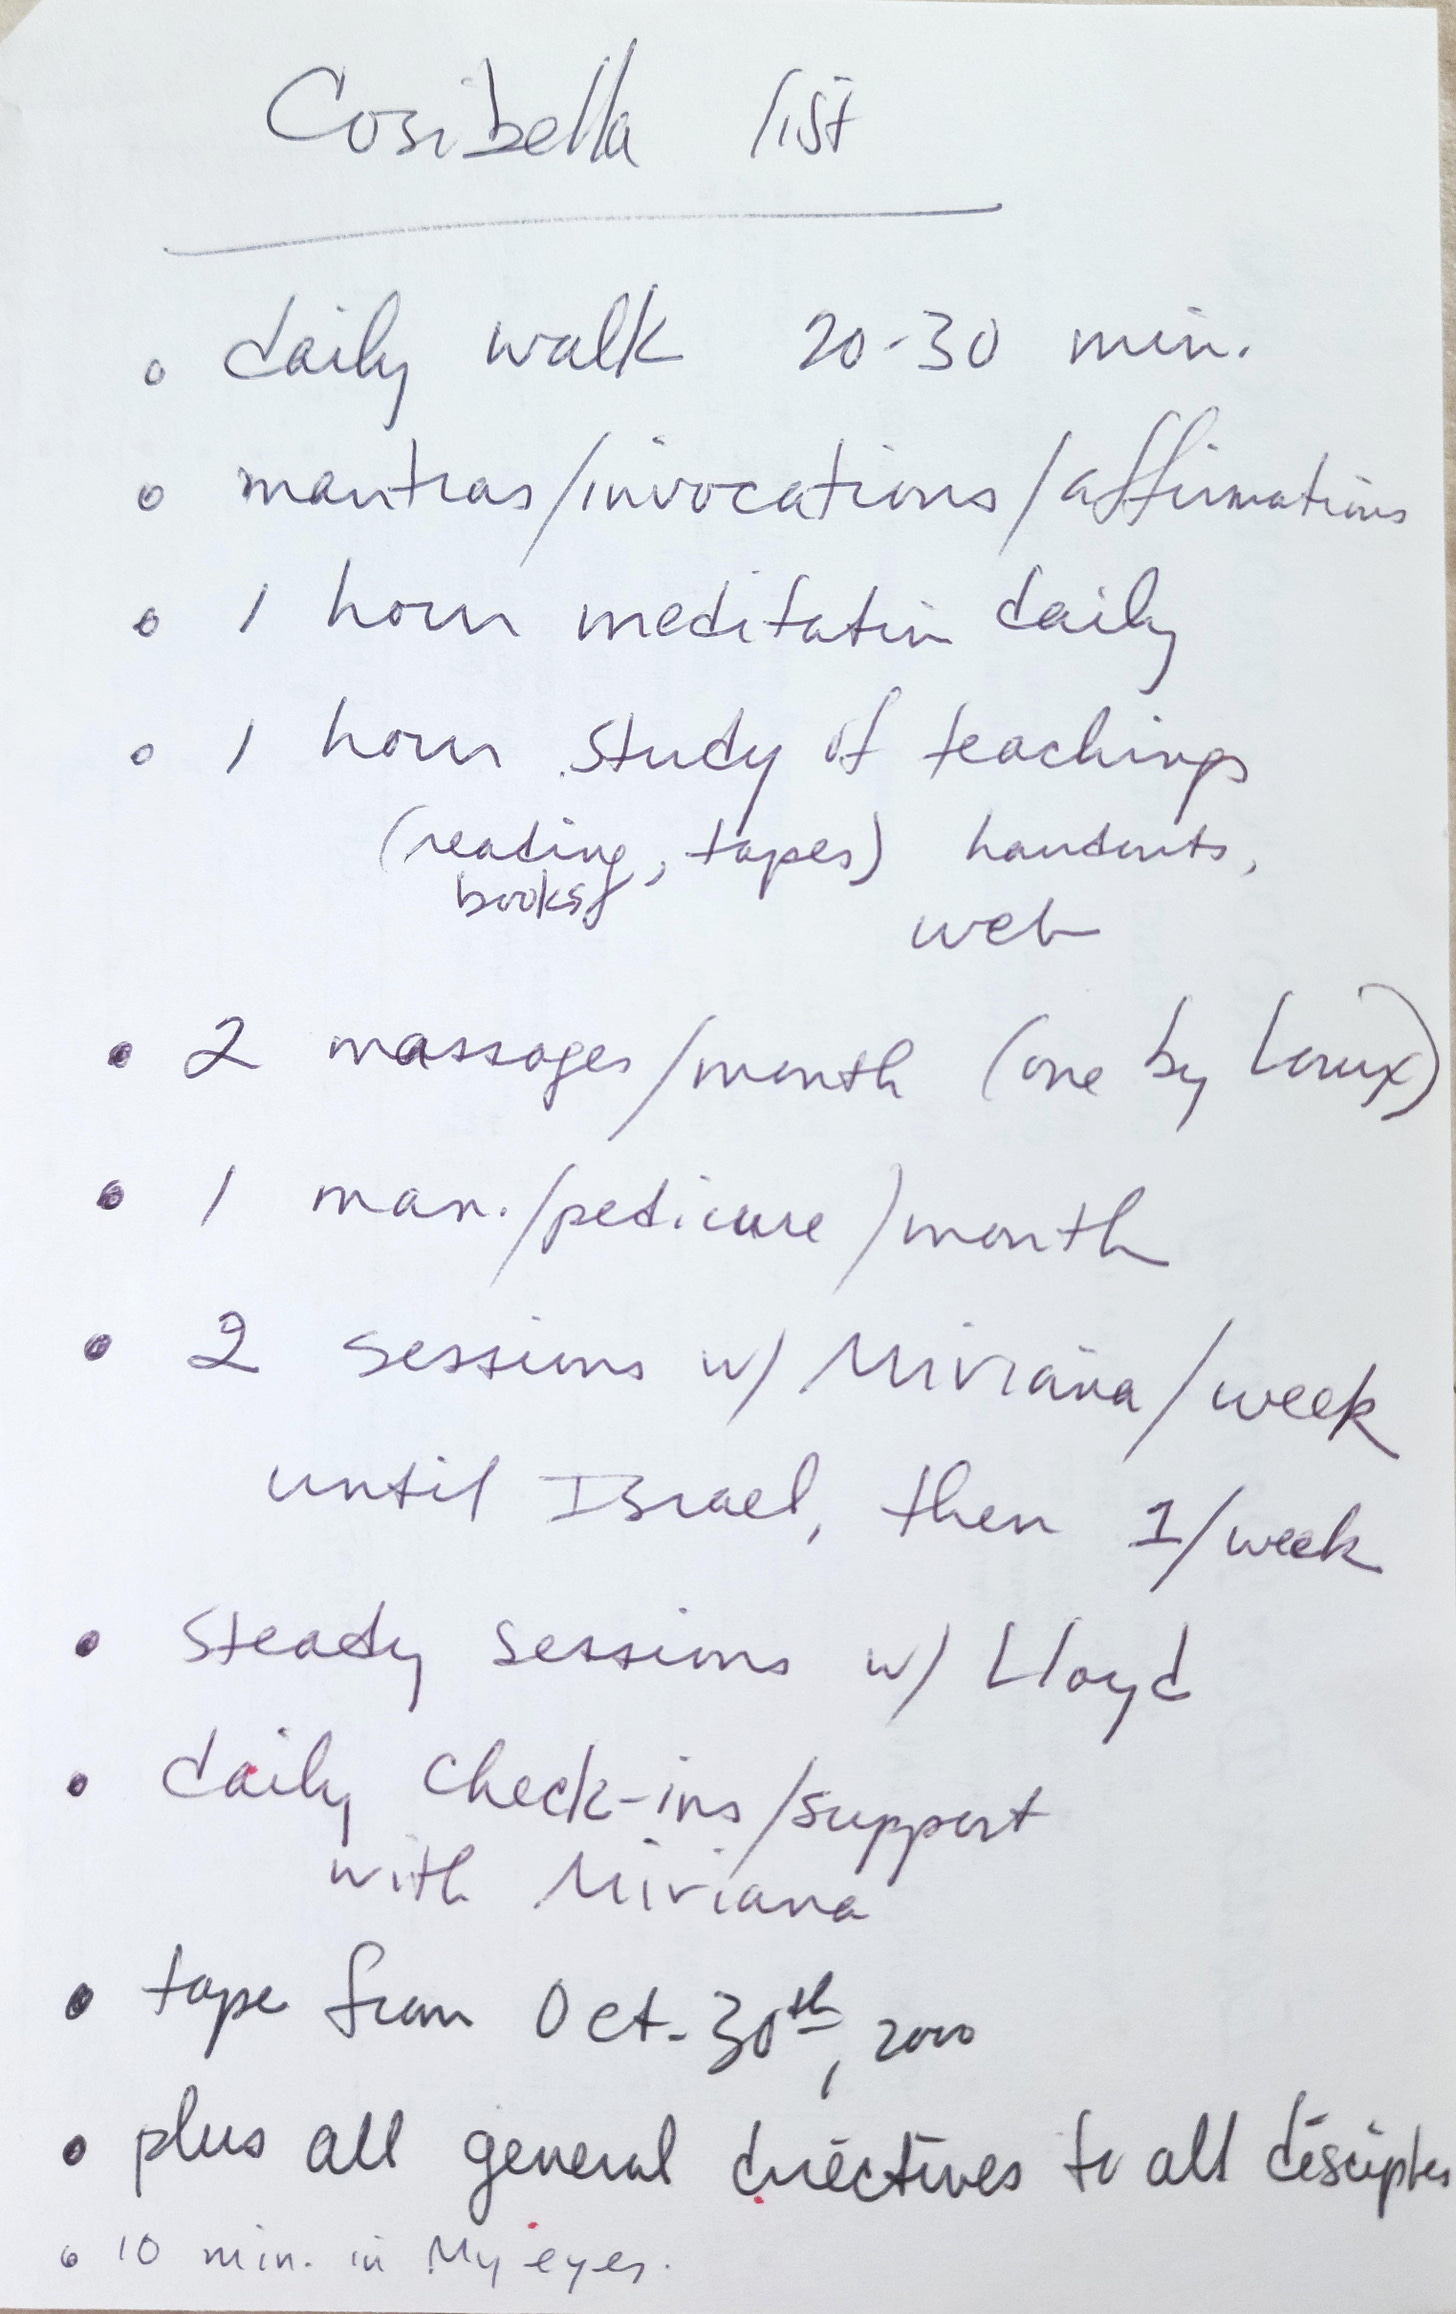 Cosibella list
• daily walk 20-30 min.
• mantras/invocations/affirmations
• 1 hour meditation daily
• 1 hour study of teachings
(reading, tapes) handouts,
books web
• 2 massages/month (one by Loux)
• 1 man./pedicure/month
• 2 sessions w/ Miviana/week
until Israel, then 1/week
• steady sessions w/ Lloyd
• daily check-ins/support
with Miviana
• tape from Oct. 30th, 2000
• plus all general directives to all desciples
• 10 min. in My eyes.